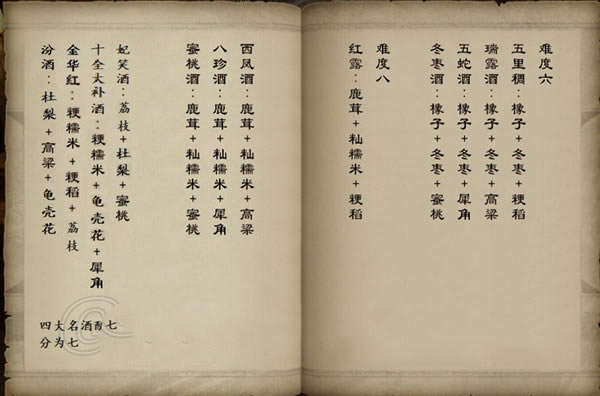 难度六
五里稠：橡子+冬枣+粳稻
瑞露酒：橡子+冬枣+高梁
五蛇酒：橡子+冬枣+犀角
冬枣酒：橡子+冬枣+蜜桃
难度八
红露：鹿茸+籼糯米+粳稻
西凤酒：鹿茸+籼糯米+高梁
八珍酒：鹿茸+籼糯米+犀角
蜜桃酒：鹿茸+籼糯米+蜜桃
妃笑酒：荔枝+杜梨+蜜桃
十全大补酒：粳糯米+龟壳花+犀角
金华红：粳糯米+粳稻+荔枝
汾酒：杜梨+高梁+龟壳花
四大名酒七
分为七